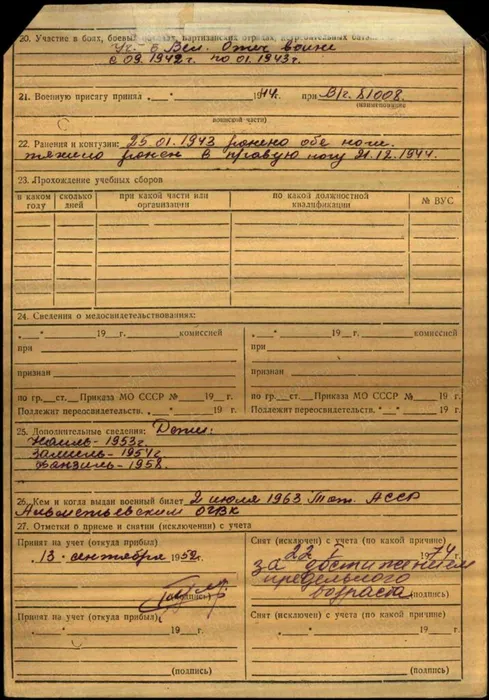 20. Участие в боях, боевых походах, партизанских отрядах, истребительных бат.
Уч. в Вел. Отеч войне
с 09.1942г. по 01.1943г.
21. Военную присягу принял „ “ 1944г. при В/ч. 81008.
(наименование
воинской части)
22. Ранения и контузии: 25.01.1943 ранено обе ноги.
тяжело ранен в правую ногу 21.12.1944.
23. Прохождение учебных сборов
в каком году сколько дней при какой части или организации по какой должностной квалификации № ВУС
24. Сведения о медосвидетельствованиях:
„ “ 19 г. комиссией „ “ 19 г. комиссией
при при
признан признан
по гр. ст. Приказа МО СССР № 19 г. по гр. ст. Приказа МО СССР № 19 г.
Подлежит переосвидетельств. „ “ 19 г. Подлежит переосвидетельств. „ “ 19 г.
25. Дополнительные сведения: Дети:
Наиль - 1953г.
- 1954г
- 1958.
26. Кем и когда выдан военный билет 2 июля 1963 Тат. АССР
Альметьевским ОГВК
27. Отметки о приеме и снятии (исключении) с учета
Принят на учет (откуда прибыл) Снят (исключен) с учета (по какой причине)
„13“ сентября 1952г. „22“ V 1974г.
за достижением
предельного
возраста
(подпись) (подпись)
Принят на учет (откуда прибыл) Снят (исключен) с учета (по какой причине)
„ “ 19 г. „ “ 19 г.
(подпись) (подпись)